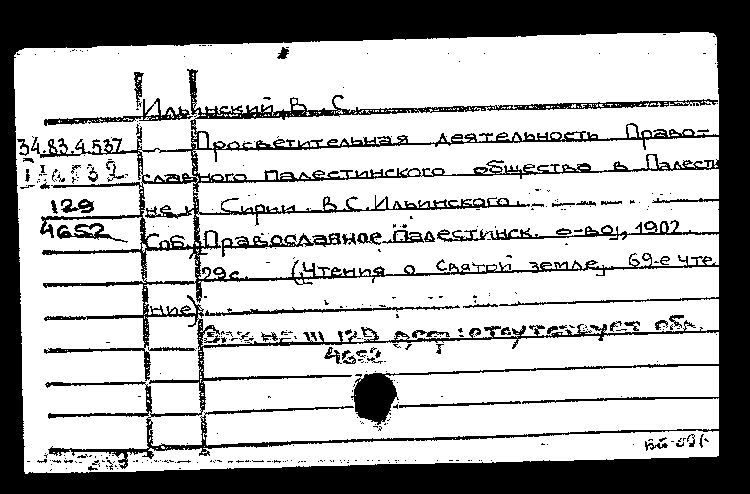 Ильинский, В. С.
34.83.4.537 Просветительная деятельность Право-
славного палестинского общества в Палести
129 не и Сирии В.С. Ильинского.
4652 Спб., Православное Палестинск. о-во, 1902.
29с. (Чтения о святой земле, 69-е чте
ние)
Экз № III 129 деф: отсутствует обл.
4652